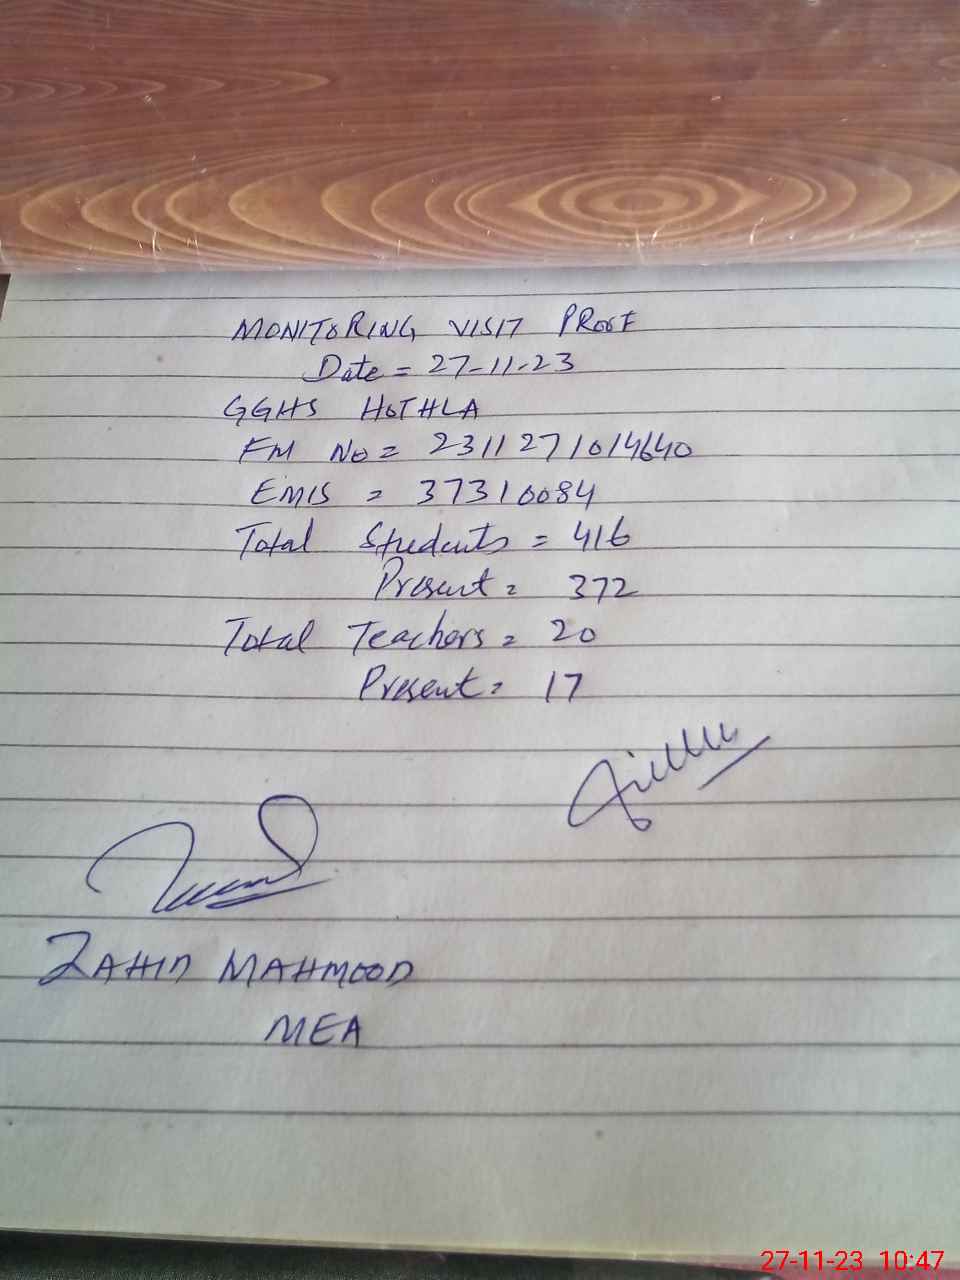 MONITORING VISIT PROOF
Date = 27-11-23
GGHS HOTHLA
FM No = 2311271014640
EMIS = 37310084
Total Students = 416
Present = 372
Total Teachers = 20
Present = 17
ZAHID MAHMOOD
MEA
27-11-23 10:47